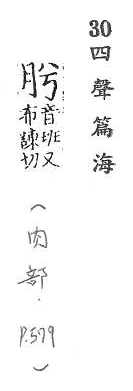 30四聲篇海
肹音班又
布諫切
(肉部.P.579)